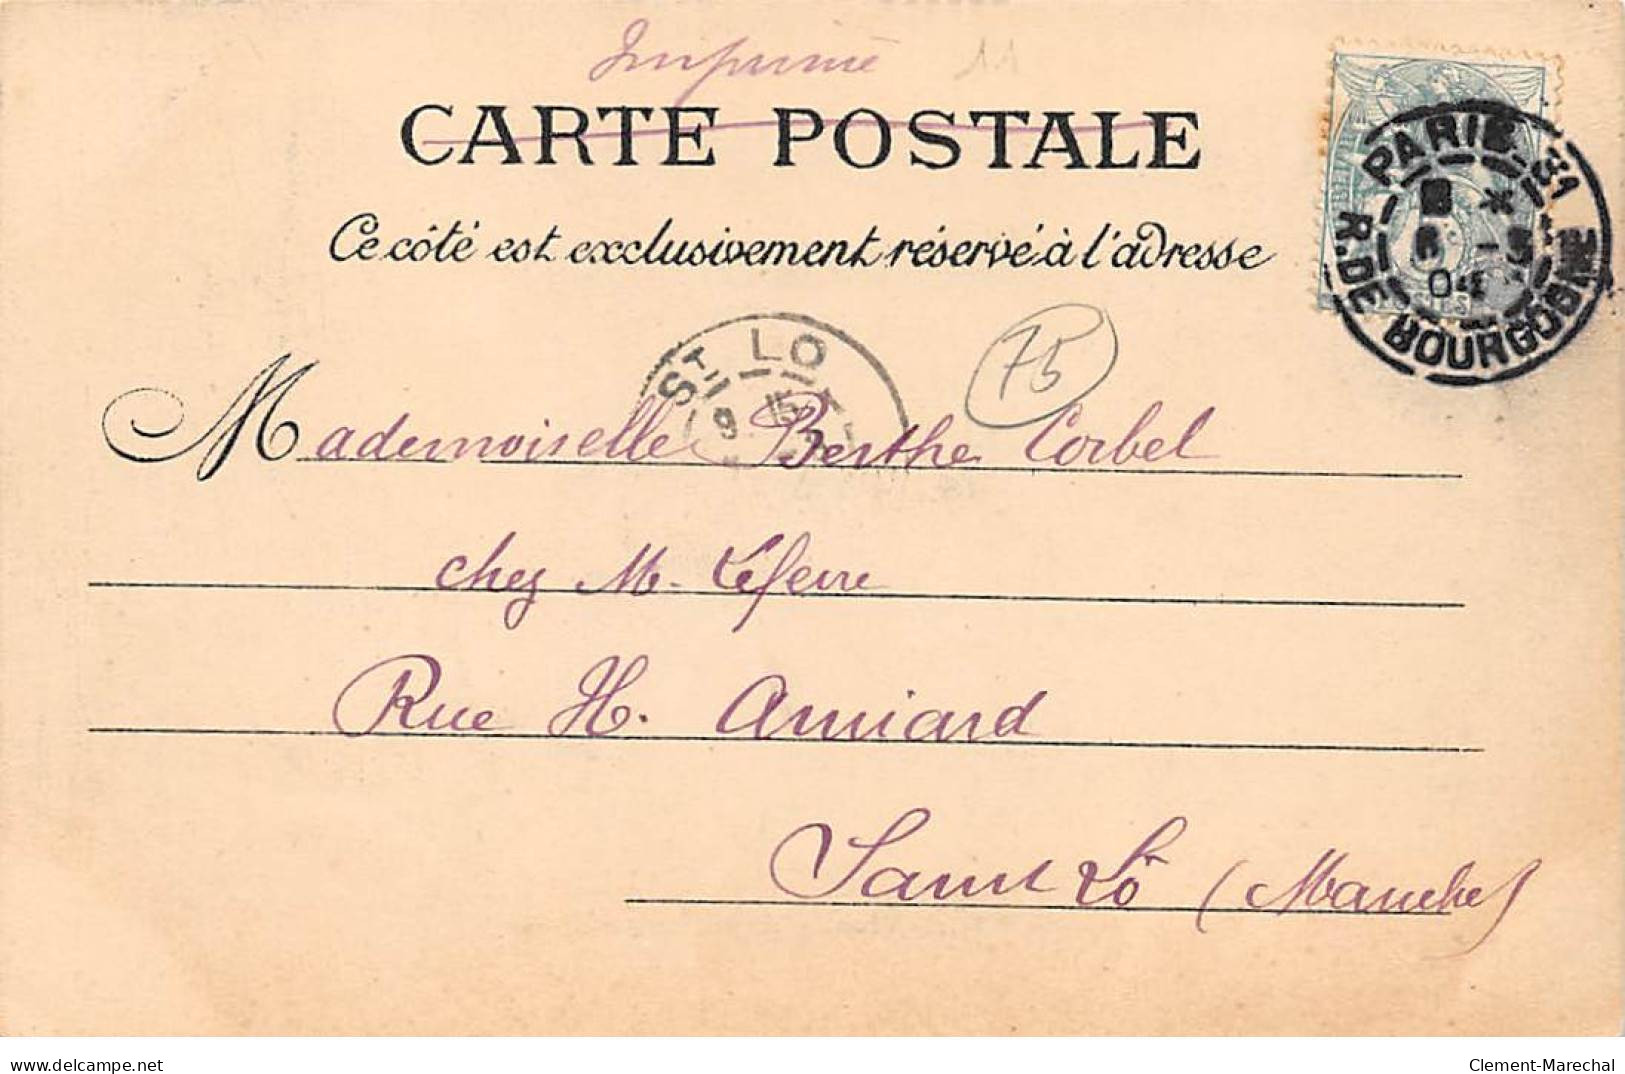 Imprimé 11
CARTE POSTALE
Ce côté est exclusivement réservé à l'adresse
PARIS-81
R. DE BOURGOGNE
04
ST LO
75
Mademoiselle Berthe Corbel
chez M. Lefevre
Rue H. Amiard
Saint Lô (Manche)
delcampe.net
Clement-Marechal